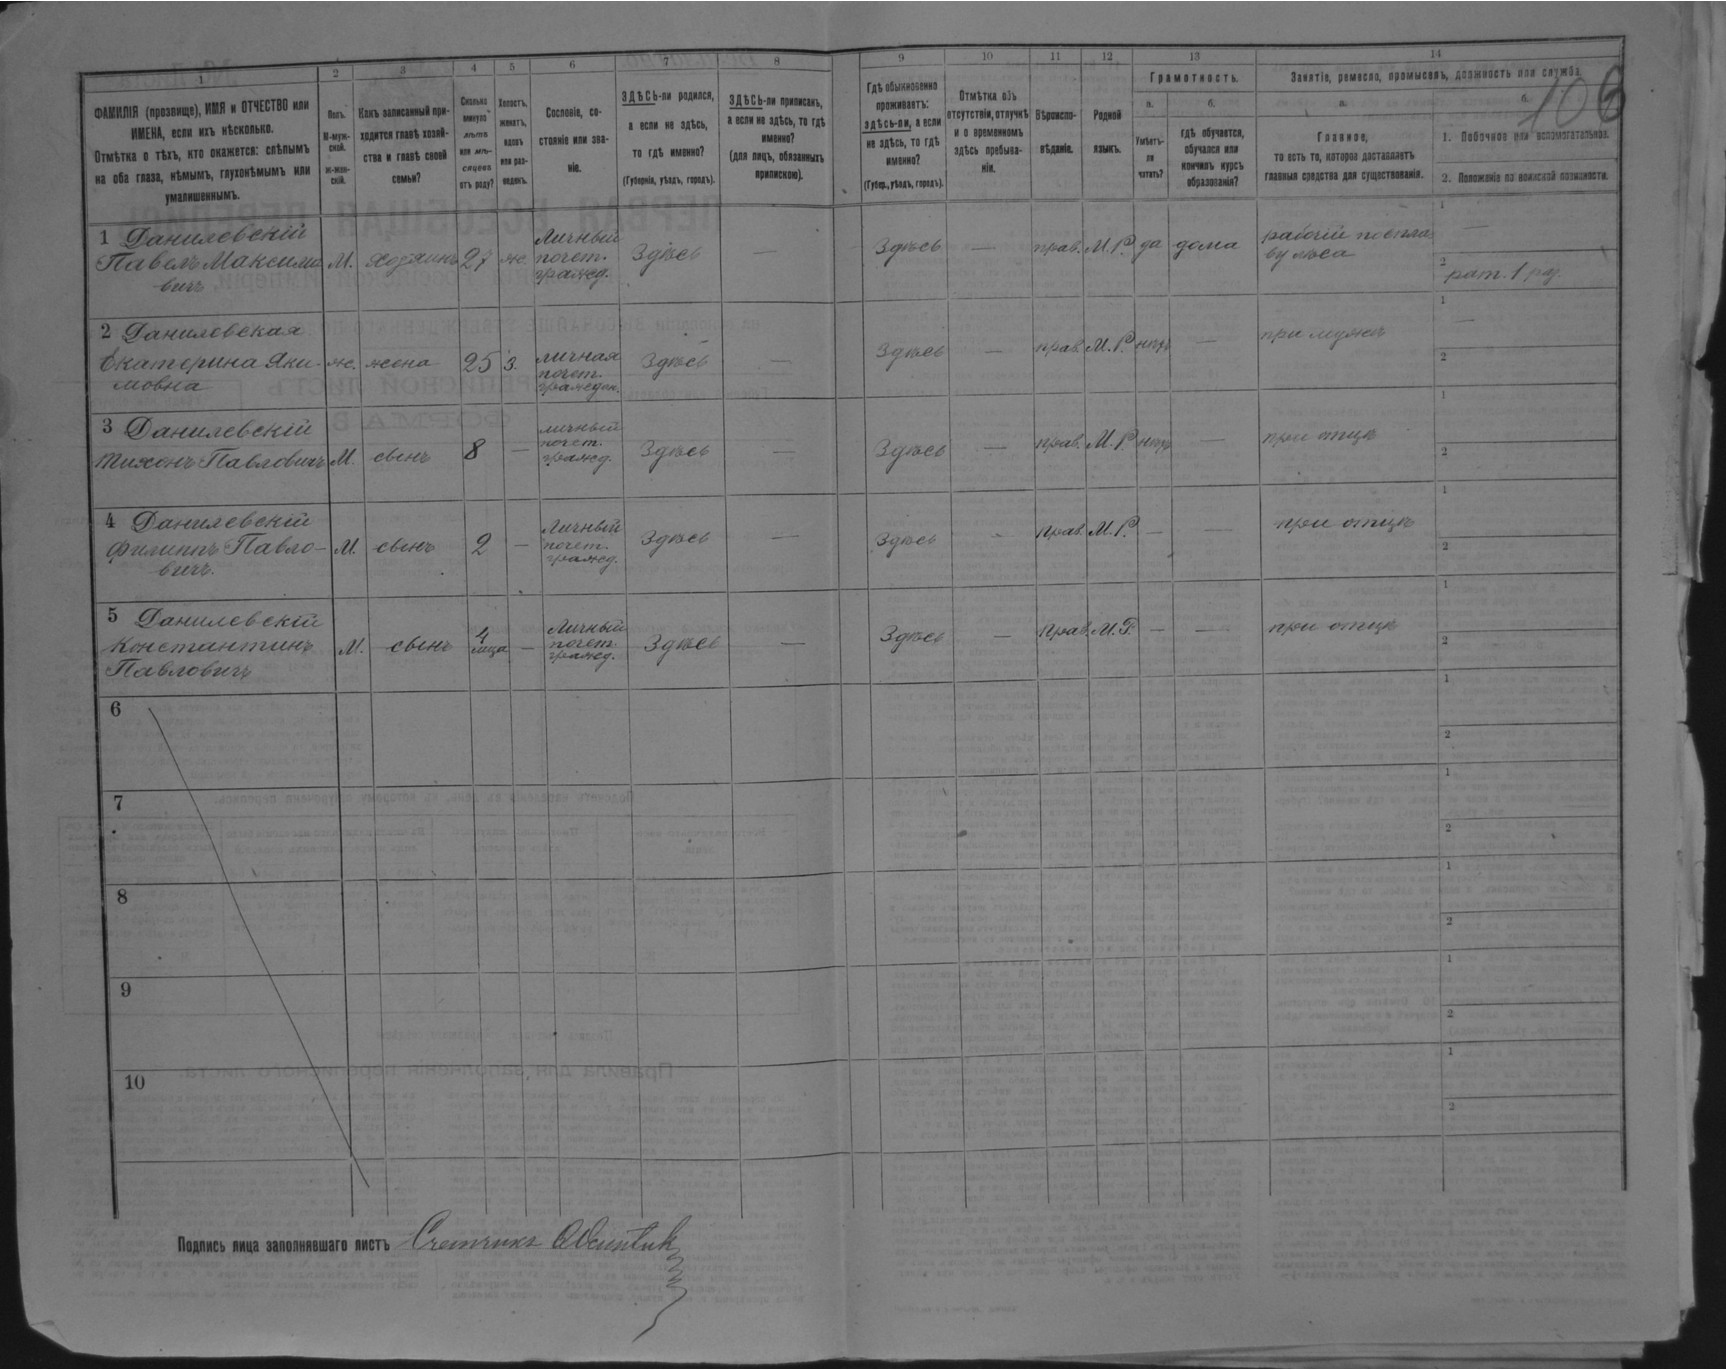 1 2 3 4 5 6 7 8 9 10 11 12 13 14
106
ФАМИЛІЯ (прозвище), ИМЯ и ОТЧЕСТВО или
ИМЕНА, если ихъ нѣсколько.
Отмѣтка о тѣхъ, кто окажется: слѣпымъ
на оба глаза, нѣмымъ, глухонѣмымъ или
умалишеннымъ.
Полъ.
М-муж-
ской.
Ж-жен-
скій.
Какъ записанный при-
ходится главѣ хозяй-
ства и главѣ своей
семьи?
Сколько
минуло
лѣтъ
или мѣ-
сяцевъ
отъ роду?
Холостъ,
женатъ,
вдовъ
или раз-
веденъ.
Сословіе, со-
стояніе или зва-
ніе.
ЗДѢСЬ-ли родился,
а если не здѣсь,
то гдѣ именно?
(Губернія, уѣздъ, городъ).
ЗДѢСЬ-ли приписанъ,
а если не здѣсь, то гдѣ
именно?
(для лицъ, обязанныхъ
припискою).
Гдѣ обыкновенно
проживаетъ:
здѣсь-ли, а если
не здѣсь, то гдѣ
именно?
(Губер., уѣздъ, городъ).
Отмѣтка объ
отсутствіи, отлучкѣ
и о временномъ
здѣсь пребыва-
ніи.
Вѣроиспо-
вѣданіе.
Родной
языкъ.
Грамотность.
а.
Умѣетъ-
ли
читать?
б.
гдѣ обучается,
обучался или
кончилъ курсъ
образованія?
Занятіе, ремесло, промыселъ, должность или служба.
а.
Главное,
то есть то, которое доставляетъ
главныя средства для существованія.
б.
1. Побочное или вспомогательное.
2. Положеніе по воинской повинности.
1 Данилевскій
Павелъ Максимо
вичъ
М. хозяинъ 27 ж.
Личный
почет.
гражд.
Здѣсь — Здѣсь — прав. М.Р. да дома
рабочій по спла
ву лѣса
1 —
2 рат. 1 ра.
2 Данилевская
Екатерина Яки-
мовна
ж. жена 25 З.
личная
почет.
гражден.
Здѣсь — Здѣсь — прав. М.Р. нѣтъ — при мужѣ
1 —
2
3 Данилевскій
Тихонъ Павловичъ
М. сынъ 8 —
личный
почет.
гражд.
Здѣсь — Здѣсь — прав. М.Р. нѣтъ — при отцѣ
1
2
4 Данилевскій
Филиппъ Павло-
вичъ.
М. сынъ 2 —
Личный
почет.
гражд.
Здѣсь — Здѣсь — прав. М.Р. — — при отцѣ
1
2
5 Данилевскій
Константинъ
Павловичъ
М. сынъ 4
мѣс. —
Личный
почет.
гражд.
Здѣсь — Здѣсь — Прав. М.Р. — — при отцѣ
1
2
6
1
2
7
1
2
8
1
2
9
1
2
10
1
2
Подпись лица заполнявшаго листъ Счетчикъ